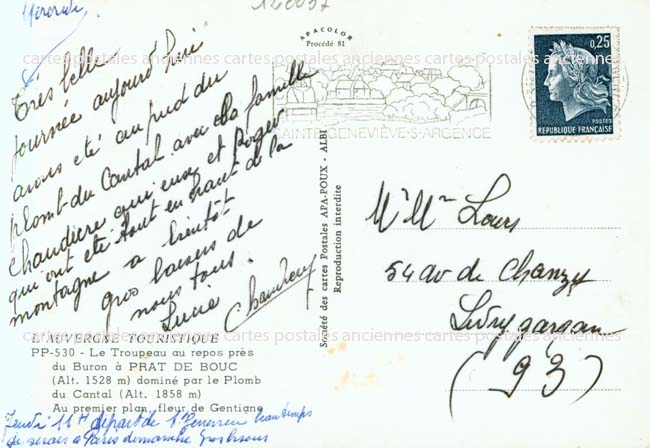 Mercredi
126037
APACOLOR
Procédé 81
cartes postales anciennes cartes postales anciennes cartes postales anciennes
Très belle
journée aujourd'hui
avons eté au pied du
plomb du Cantal avec la famille
Chaudiere qui eux et Roger
qui ont été tout en haut de la
montagne a bientôt
gros baisers de
nous tous.
Lucie
L'AUVERGNE TOURISTIQUE
PP-530 - Le Troupeau au repos près
du Buron à PRAT DE BOUC
(Alt. 1528 m) dominé par le Plomb
du Cantal (Alt. 1858 m)
Au premier plan, fleur de Gentiane
Jeudi 11H départ de
a Paris dimanche
Société des cartes Postales APA-POUX - ALBI
Reproduction interdite
SAINTE-GENEVIÈVE-S-ARGENCE
0,25
POSTES
REPUBLIQUE FRANÇAISE
Mr Mme Lours
54 av de Chanzy
Livry gargan
(93)